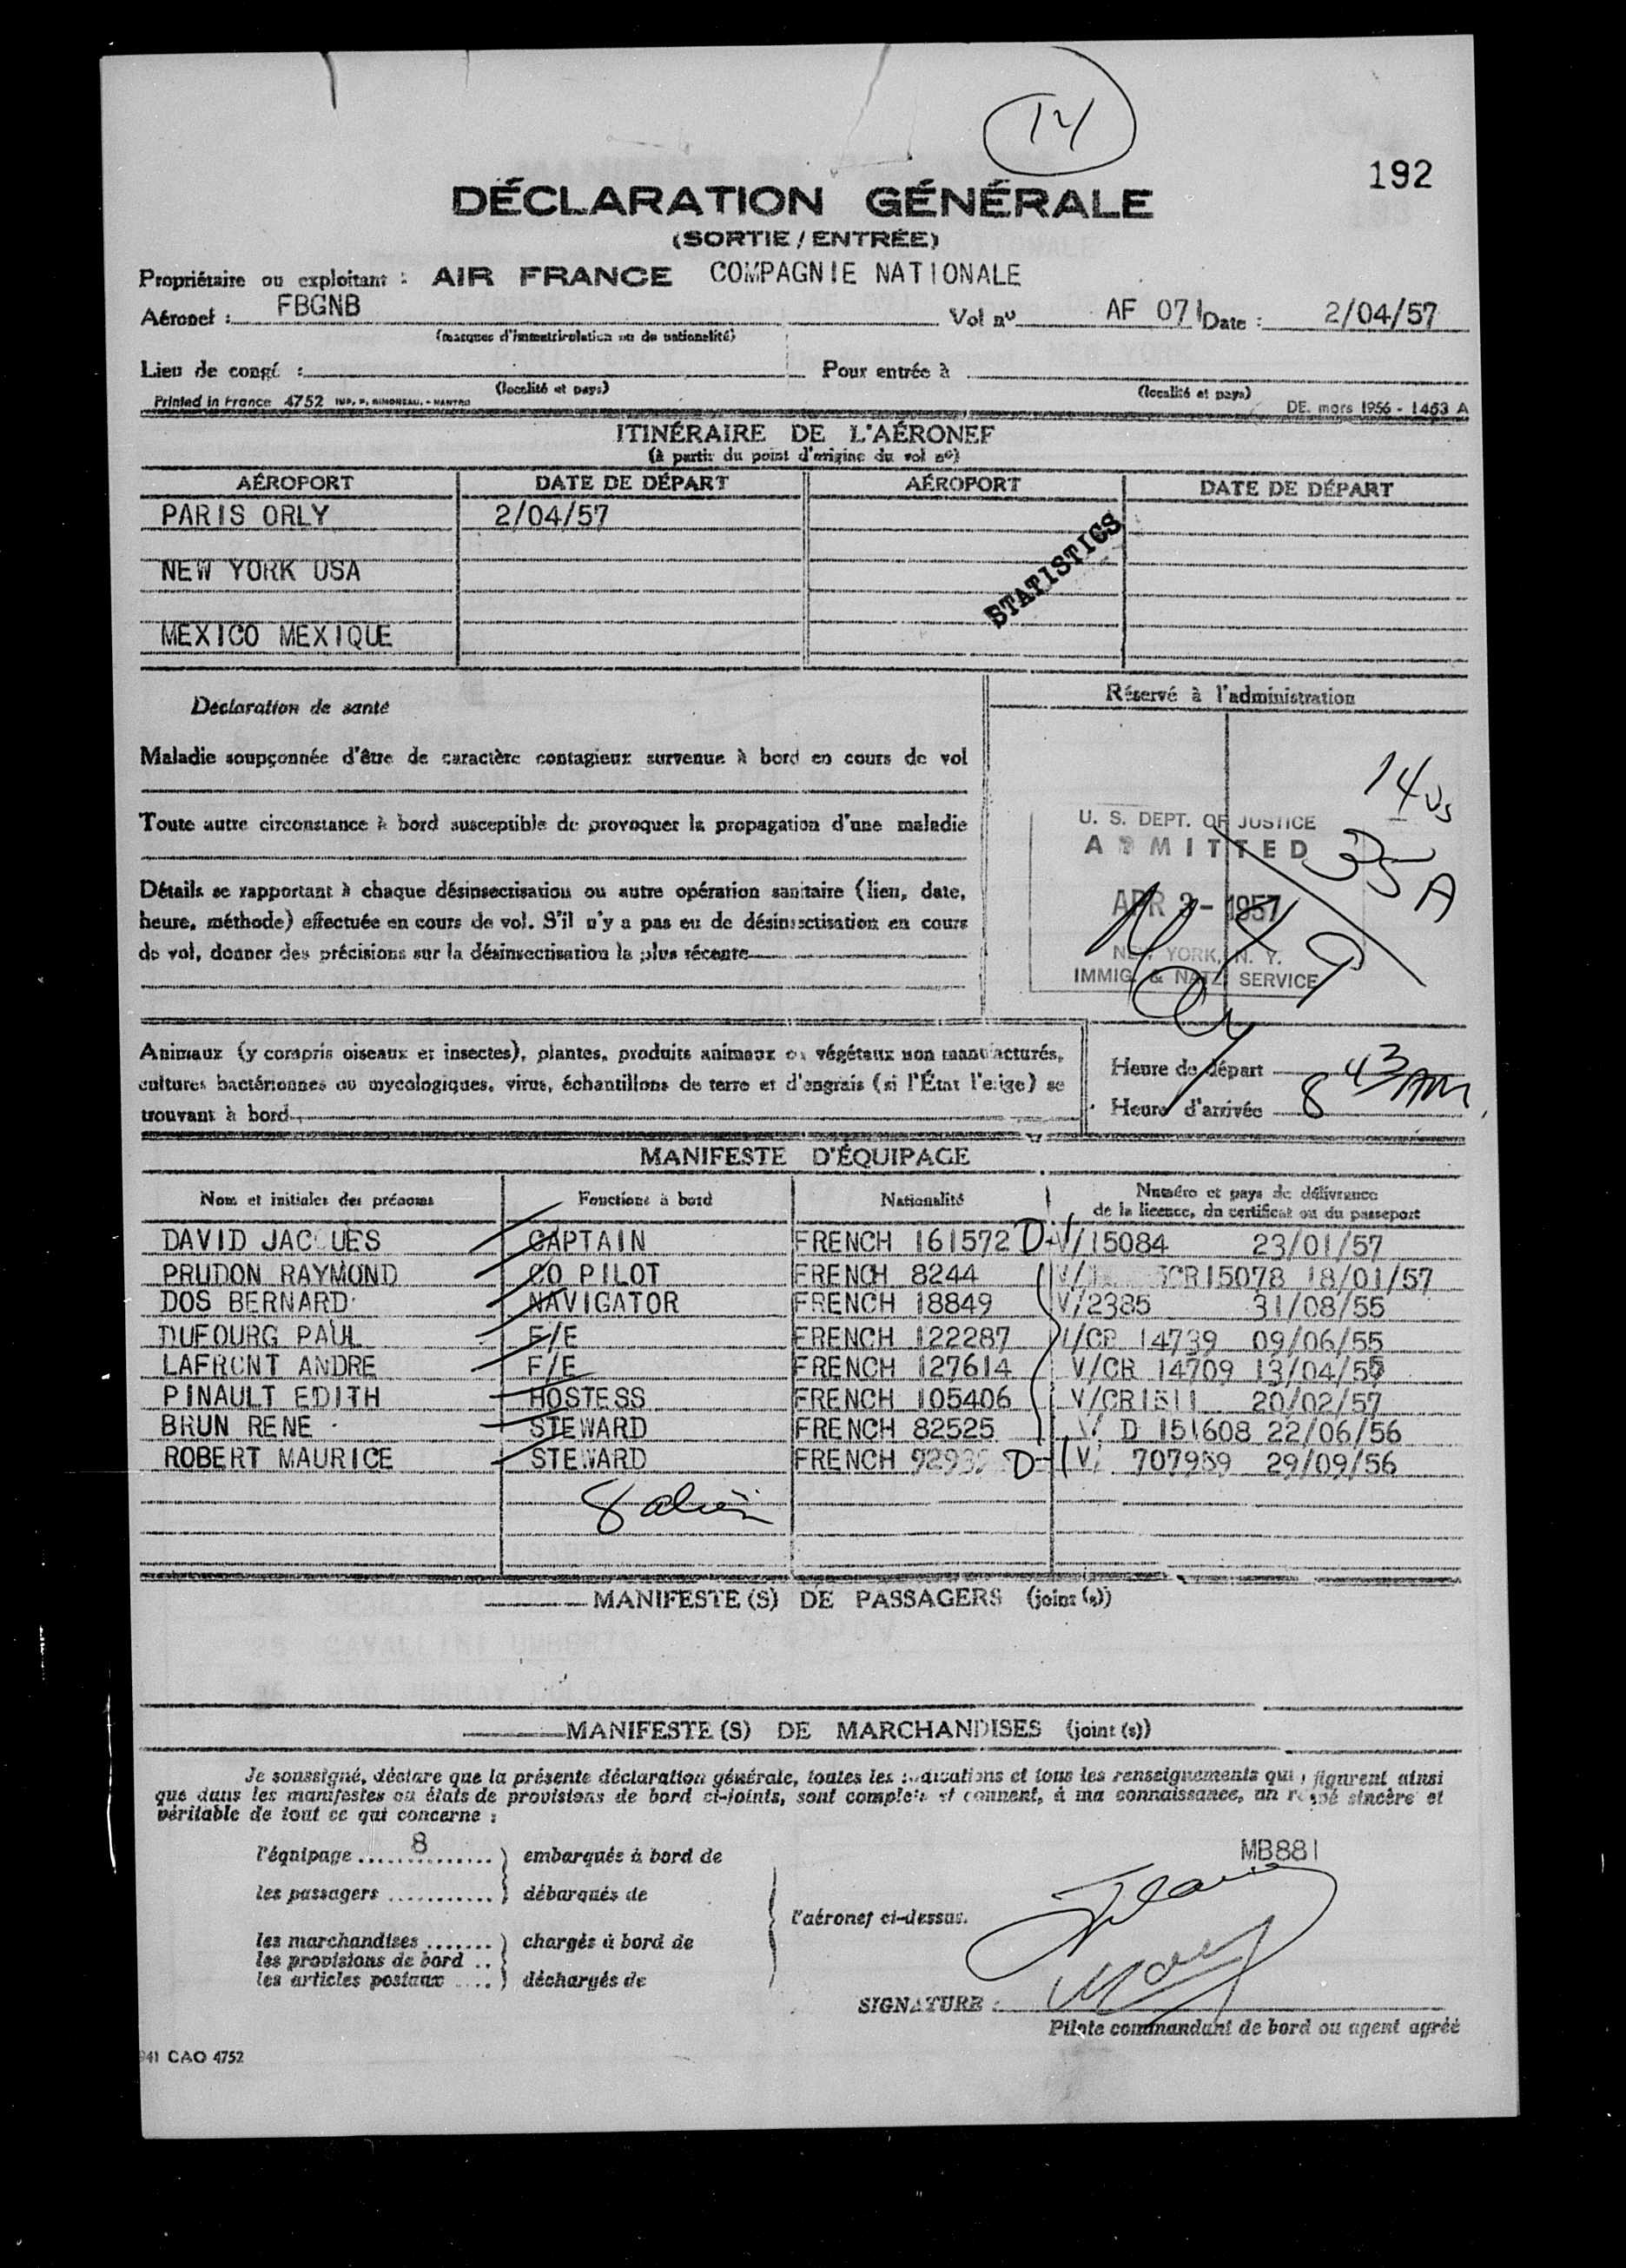 14
192
DÉCLARATION GÉNÉRALE
(SORTIE / ENTRÉE)
Propriétaire ou exploitant : AIR FRANCE COMPAGNIE NATIONALE
Aéronef : FBGNB Vol nº AF 071 Date : 2/04/57
(marques d'immatriculation ou de nationalité)
Lieu de congé : Pour entrée à
(localité et pays) (localité et pays)
Printed in France 4752 IMP. P. RIMONEAU. - NANTES DE. mars 1956 - 1463 A
ITINÉRAIRE DE L'AÉRONEF
(à partir du point d'origine du vol nº)
AÉROPORT DATE DE DÉPART AÉROPORT DATE DE DÉPART
PARIS ORLY 2/04/57
STATISTICS
NEW YORK USA
MEXICO MEXIQUE
Déclaration de santé
Réservé à l'administration
Maladie soupçonnée d'être de caractère contagieux survenue à bord en cours de vol
Toute autre circonstance à bord susceptible de provoquer la propagation d'une maladie
Détails se rapportant à chaque désinsectisation ou autre opération sanitaire (lieu, date,
heure, méthode) effectuée en cours de vol. S'il n'y a pas eu de désinsectisation en cours
de vol, donner des précisions sur la désinsectisation la plus récente
14 US
35 A
U. S. DEPT. OF JUSTICE
ADMITTED
APR 3 - 1957
NEW YORK, N. Y.
IMMIG. & NATZ SERVICE
Animaux (y compris oiseaux et insectes), plantes, produits animaux ou végétaux non manufacturés,
cultures bactériennes ou mycologiques, virus, échantillons de terre et d'engrais (si l'État l'exige) se
trouvant à bord
Heure de départ
Heure d'arrivée 8 43 AM
MANIFESTE D'ÉQUIPAGE
Nom et initiales des prénoms Fonctions à bord Nationalité Numéro et pays de délivrance
de la licence, du certificat ou du passeport
DAVID JACQUES CAPTAIN FRENCH 161572 D- V/15084 23/01/57
PRUDON RAYMOND CO PILOT FRENCH 8244 V/ CR15078 18/01/57
DOS BERNARD NAVIGATOR FRENCH 18849 V/2385 31/08/55
DUFOURG PAUL F/E FRENCH 122287 V/CR 14739 09/06/55
LAFRONT ANDRE F/E FRENCH 127614 V/CR 14709 13/04/55
PINAULT EDITH HOSTESS FRENCH 105406 V/CR1511 20/02/57
BRUN RENE STEWARD FRENCH 82525 V/ D 151608 22/06/56
ROBERT MAURICE STEWARD FRENCH D- V/ 707959 29/09/56
8 alien
MANIFESTE (S) DE PASSAGERS (joint (s))
MANIFESTE (S) DE MARCHANDISES (joint (s))
Je soussigné, déclare que la présente déclaration générale, toutes les indications et tous les renseignements qui figurent ainsi
que dans les manifestes ou états de provisions de bord ci-joints, sont complets et donnent, à ma connaissance, un relevé sincère et
véritable de tout ce qui concerne :
l'équipage 8 ) embarqués à bord de
les passagers ) débarqués de
l'aéronef ci-dessus.
les marchandises ) chargés à bord de
les provisions de bord
les articles postaux ) déchargés de
MB881
SIGNATURE :
Pilote commandant de bord ou agent agréé
941 CAO 4752